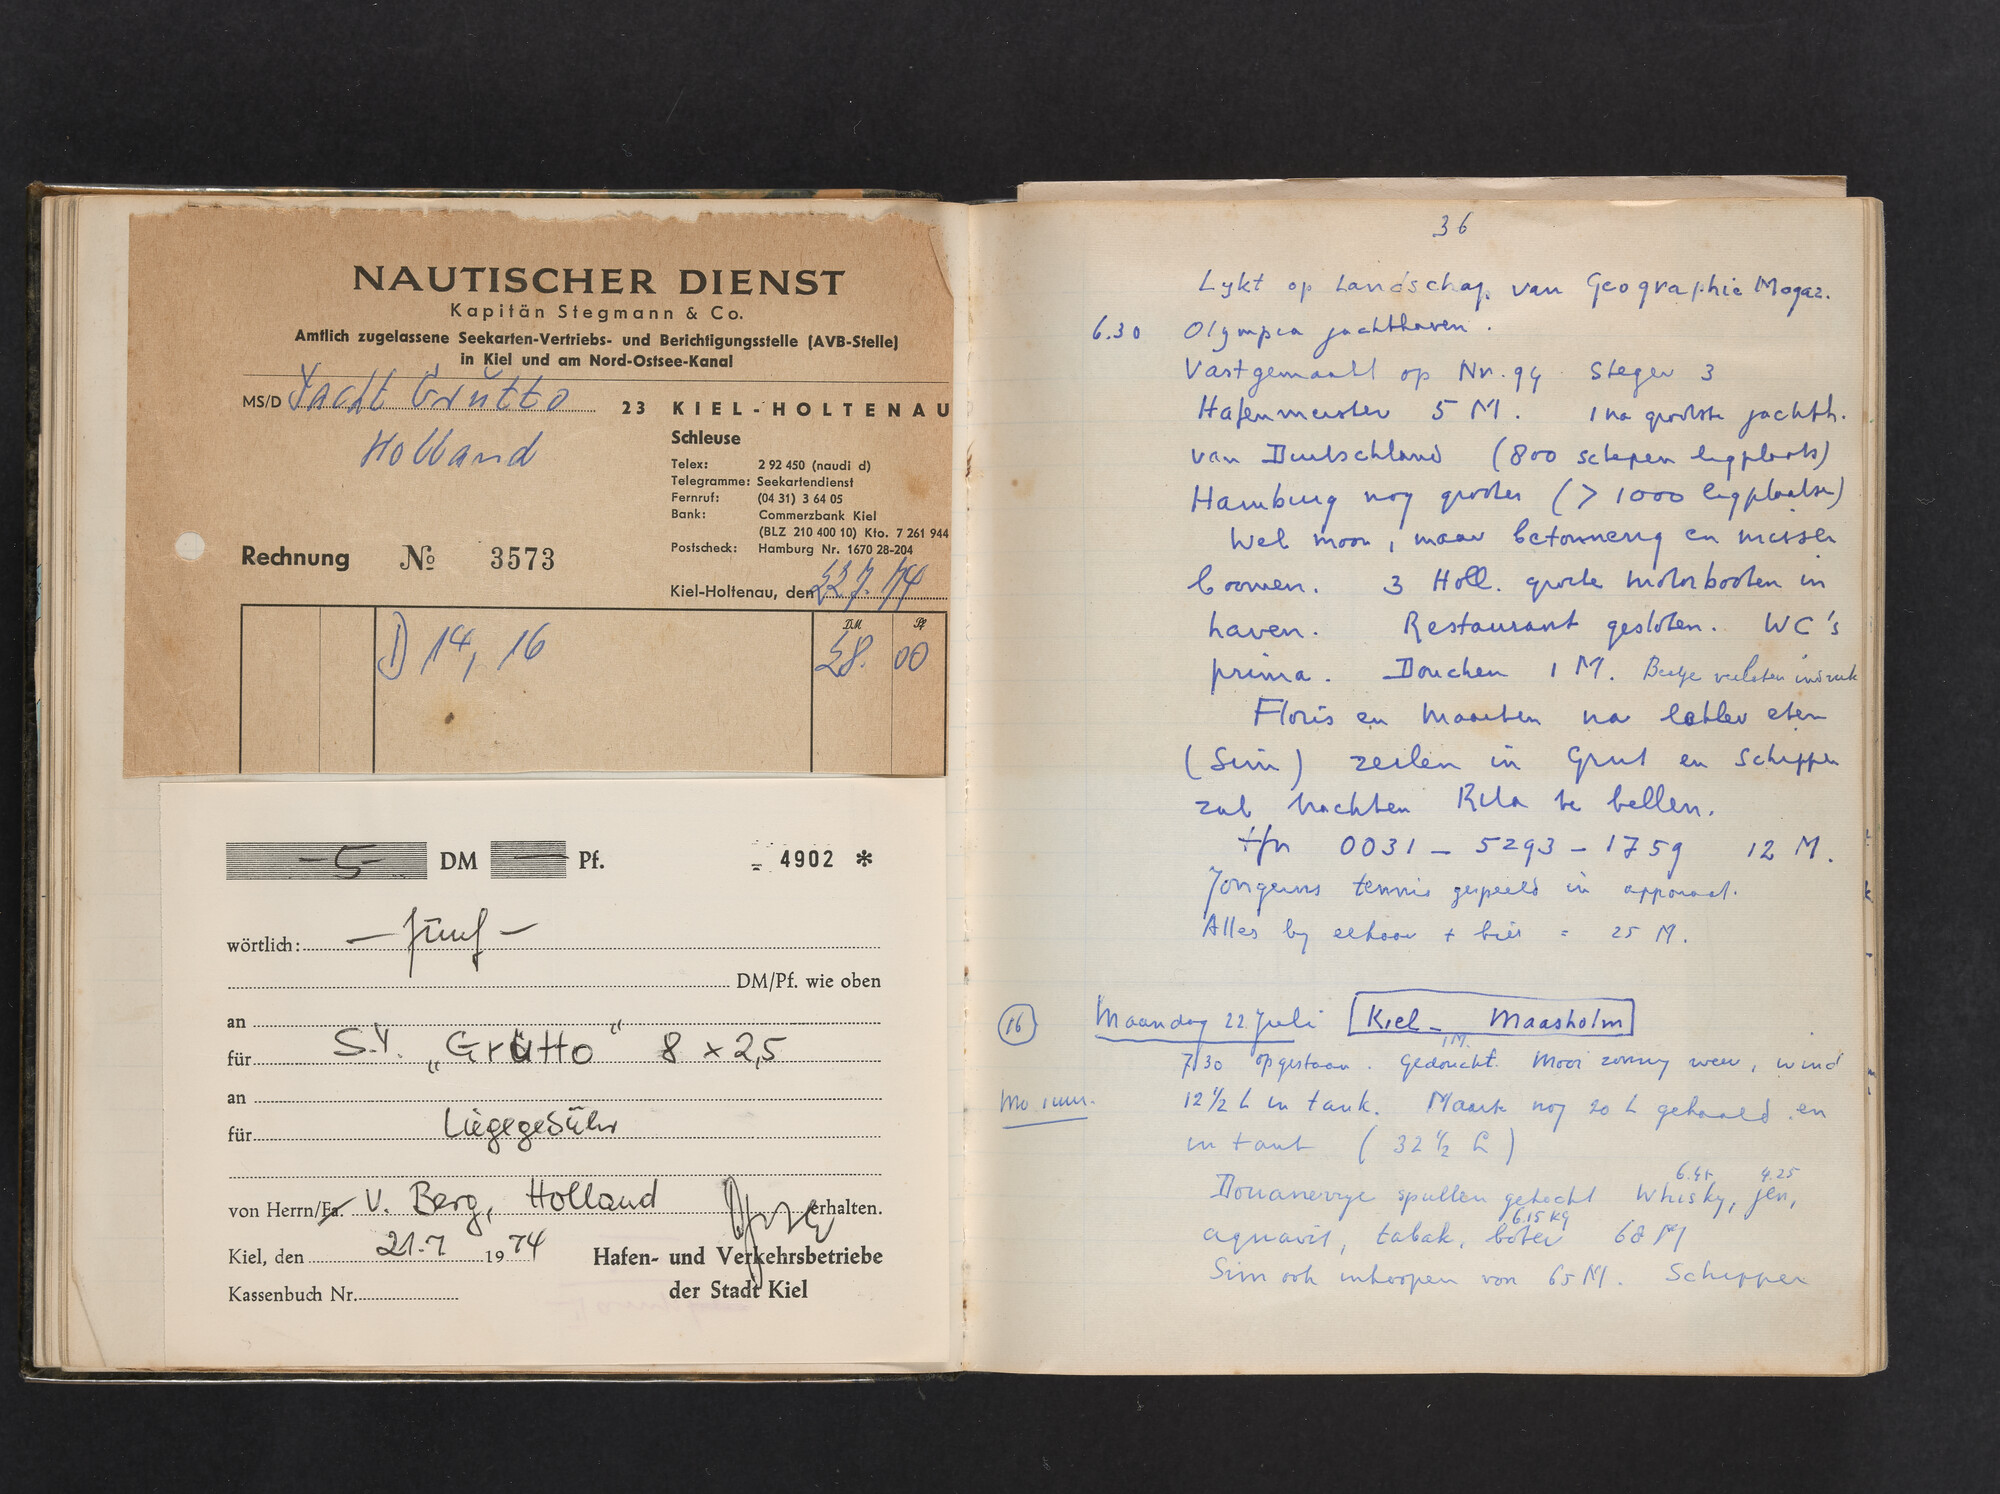 NAUTISCHER DIENST
Kapitän Stegmann & Co.
Amtlich zugelassene Seekarten-Vertriebs- und Berichtigungsstelle (AVB-Stelle)
in Kiel und am Nord-Ostsee-Kanal
MS/D Yacht Grütto
Holland
23 KIEL-HOLTENAU
Schleuse
Telex: 2 92 450 (naudi d)
Telegramme: Seekartendienst
Fernruf: (04 31) 3 64 05
Bank: Commerzbank Kiel
(BLZ 210 400 10) Kto. 7 261 944
Postscheck: Hamburg Nr. 1670 28-204
Rechnung № 3573
Kiel-Holtenau, den 22.7.74
DM Pf
D 14, 16 28. 00
-5- DM — Pf. 4902 *
wörtlich: - fünf -
DM/Pf. wie oben
an
für S.Y. „Grütto“ 8 x 2,5
an
für Liegegebühr
von Herrn/Fa. V. Berg, Holland erhalten.
Kiel, den 21.7 1974 Hafen- und Verkehrsbetriebe
Kassenbuch Nr. der Stadt Kiel
36
Lykt op landschap van Geographic Magaz.
6.30 Olympia jachthaven.
Vastgemaakt op Nr. 94 Steger 3
Hafenmeister 5 M. 1 na grootste jachth.
van Deutschland (800 schepen ligplaats)
Hamburg nog groter (> 1000 ligplaatsen)
Wel mooi, maar betonnerig en
bomen. 3 Holl. grote motorboten in
haven. Restaurant gesloten. WC's
prima. Douchen 1 M. Beetje verlaten indruk
Floris en Maarten na lekker eten
(Sim) zeilen in Grut en Schipper
zal trachten Rita te bellen.
tfn 0031 - 5293 - 1759 12 M.
Jongens tennis gespeeld in apparaat.
Alles by elkaar + bier = 25 M.
16 Maandag 22 Juli Kiel - Maasholm
7.30 opgestaan. Gedoucht. 1 M. Mooi zonnig weer, wind
12½ L in tank. Maart nog 20 L gehaald en
in tank (32½ L)
6.45 4.25
Douanevrye spullen gekocht Whisky, jen,
6.15 Kg
aquavit, tabak, boter 68 M
Sim ook inkopen van 65 M. Schipper